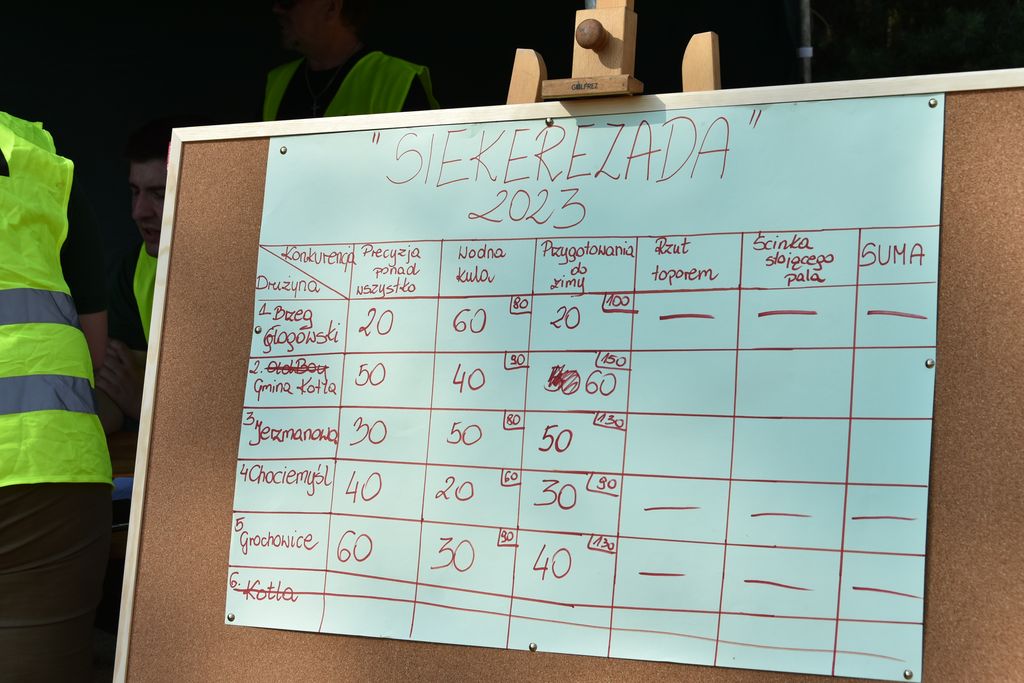 GOLFREZ
"SIEKEREZADA"
2023
Konkurencja
Drużyna
Precyzja ponad wszystko
Wodna kula
Przygotowania do zimy
Rzut toporem
Ścinka stojącego pala
SUMA
1. Brzeg Głogówski 20 60 80 20 100 — — —
2. Old Boy Gmina Kotla 50 40 90 60 150
3 Jerzmanowa 30 50 80 50 130
4 Chociemyśl 40 20 60 30 90 — — —
5 Grochowice 60 30 90 40 130 — — —
6. Kotla